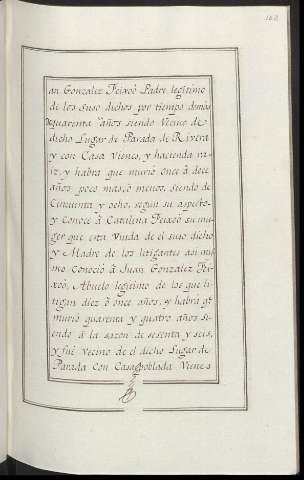 102
an Gonzalez Feixoó Padre legitimo
de los suso dichos por tiempo demas
de quarenta años siendo Vecino de
dicho Lugar de Parada de Rivera
y con Casa Vienes, y hacienda ra-
iz, y habra que murió once ó doce
años poco mas, ó menos, siendo de
Cinquenta y ocho, segun su aspecto
y Conoce á Catalina Feixoó su mu-
ger que esta Viuda de el suso dicho
y Madre de los litigantes asi mi-
mo Conoció á Juan Gonzalez Fei-
xoó, Abuelo legitimo de los que li-
tigan diez ó once años, y habra qe.
murio quarenta y quatro años si-
endo á la sazon de sesenta y seis,
y fué vecino de el dicho Lugar de
Parada Con Casa poblada Vienes